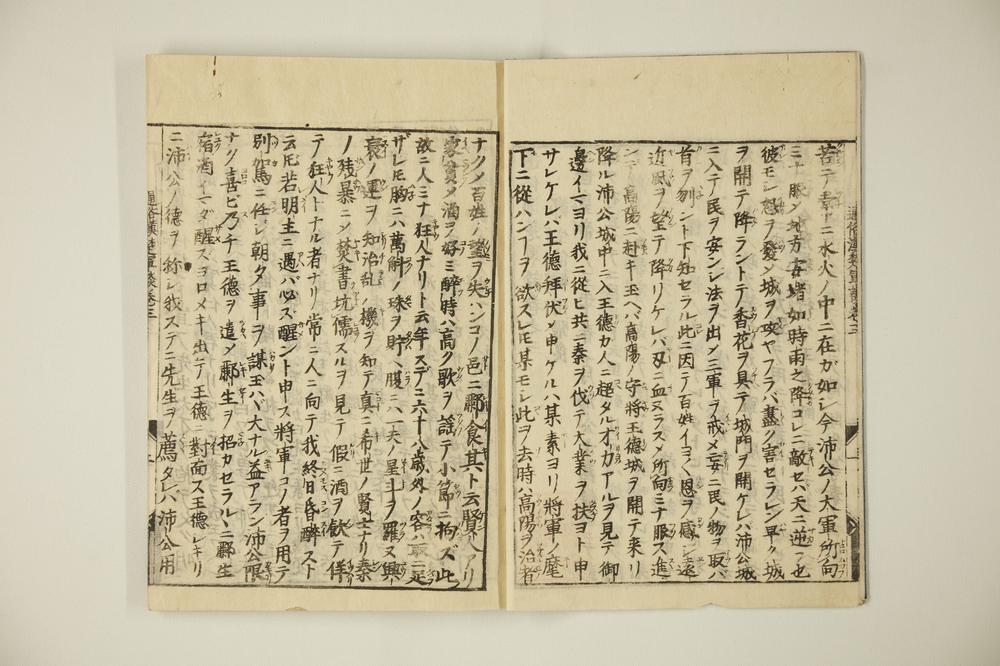 苦テ幸ニ水火ノ中ニ在ガ如シ今沛公ノ大軍所向
ミナ豚シ地方安堵如時雨之降コレニ敵セバ天ニ逆フ也
彼モシ怒ヲ發シ城ヲ攻ヤブラバ盡ク害セラレン早ク城
ヲ開テ降ラントテ香花ヲ具テ城門ヲ開ケレバ沛公城
ニ入テ民ヲ安ンシ法ヲ出メ三軍ヲ戒メ妄ニ民ノ物ヲ取バ
首ヲ刎ント下知セラル此ニ因テ百姓イヨく恩ヲ感シ遠
近眠ヲ望テ降リケレバ刃ニ血ヌラスメ所向ミナ服ス進
ンデ高陽ニ赴キ玉ヘバ高陽ノ守將王德城ヲ開テ来リ
降ル沛公城中ニ入王德カ人ニ超タル才力アルヲ見テ御
邊イマヨリ我ニ從ヒ共ニ秦ヲ伐テ大業ヲ扶ヨト申
サレケレバ王德拜伏メ申ケルハ某素ヨリ將軍ノ麾
下ニ從ハンヿヲ欲スレ𪜈某モシ此ヲ去時ハ高陽ヲ治者
ナクメ百姓ノ望ヲ失ハンコノ邑ニ酈食其ト云賢人アリ
家貧メ酒ヲ好ミ醉時ハ高ク歌ヲ謡テ小節ニ拘ズ此
故ニ人ミナ狂人ナリト云年スデニ六十八歳外ノ容ハ取ニ足
ザレ𪜈胸ニハ萬斛ノ珠ヲ貯ヘ腹ニハ一天ノ星斗ヲ羅又興
衰ノ運ヲ知治乱ノ機ヲ知テ真ニ希世ノ賢士ナリ秦
ノ殘暴ニメ焚書坑儒スルヲ見テ假ニ酒ヲ飲テ佯
テ狂人トナル者ナリ常ニ人ニ向テ我終日昏醉スト
云𪜈若明主ニ遇バ必ズ醒ント申ス將軍コノ者ヲ用テ
別駕ニ任シ朝夕事ヲ謀玉ハヾ大ナル益アラン沛公限
ナク喜ビ乃チ王德ヲ遣メ酈生ヲ招カセラルヽニ酈生
宿酒イマダ醒ズヨロメキ出テ王德ニ對面ス王德シキリ
ニ沛公ノ德ヲ稱シ我スデニ先生ヲ薦タレバ沛公用
通俗漢楚軍談巻三